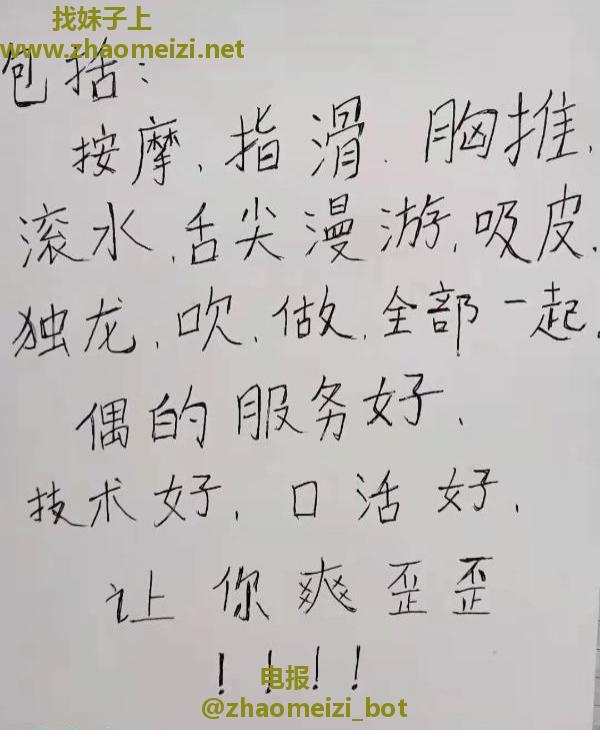 找妹子上
www.zhaomeizi.net
包括:
按摩.指滑.胸推.
滚水.舌尖漫游.吸皮.
独龙.吹.做.全部一起.
偶的服务好.
技术好.口活好.
让你爽歪歪
!!!!
电报
@zhaomeizi_bot